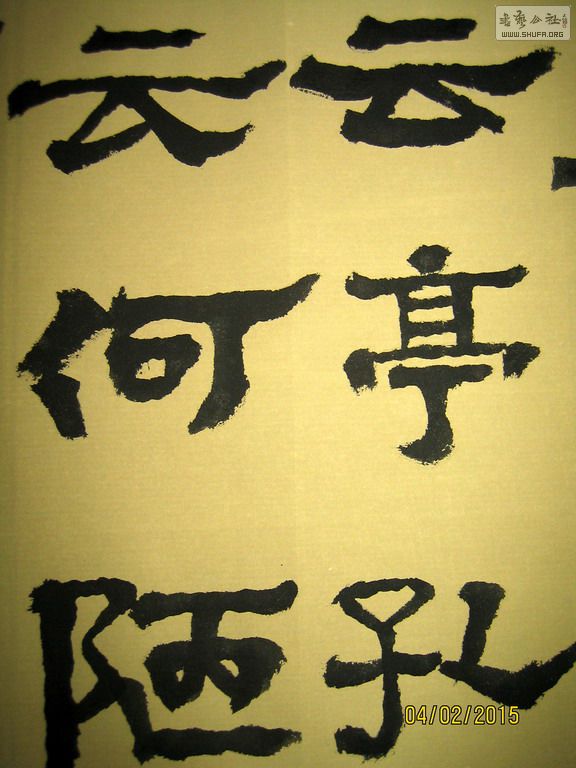 云亭孔
云何陋
04/02/2015
書藝公社
WWW.SHUFA.ORG